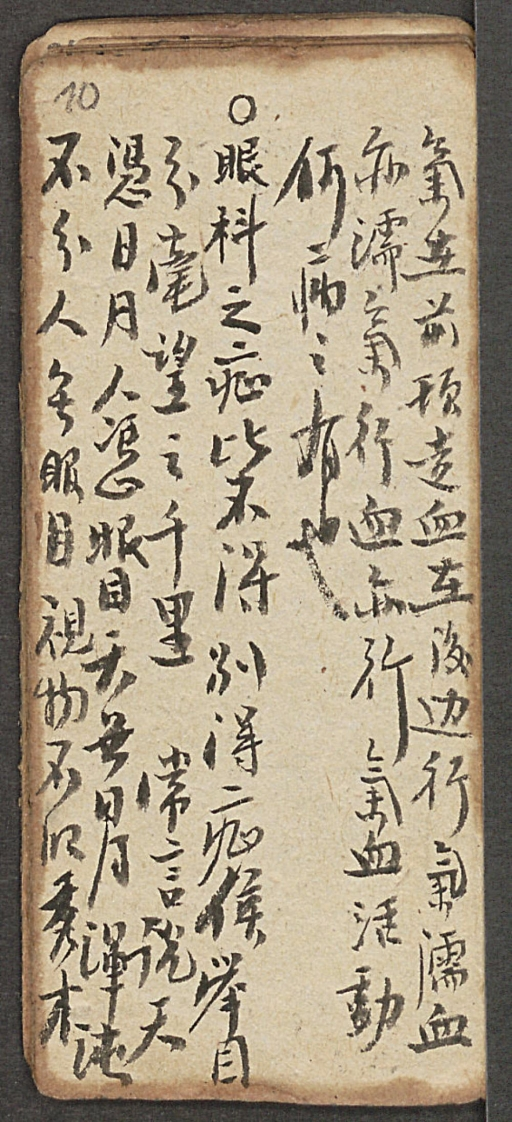 氣在前頭走血在後边行氣濡血
亦濡氣行血亦行氣血活動
何病之有也
○
眼科之症比不得別得症候举目
分毫望之千里 常言説天
憑日月人憑眼目天無日月渾沌
不分人無眼目視物不明
10